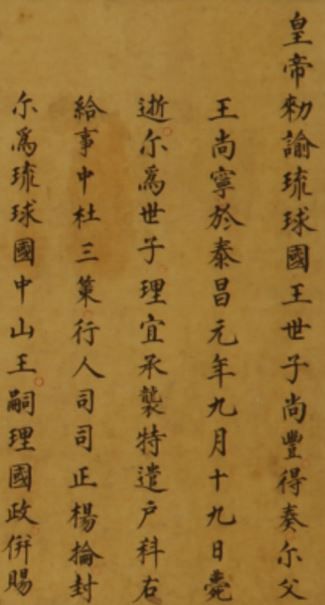 皇帝勑諭琉球國王世子尚豐得奏尓父
王尚寧於泰昌元年九月十九日薨
逝尓為世子理宜承襲特遣户科右
給事中杜三策行人司司正楊掄封
尓為琉球國中山王嗣理國政併賜